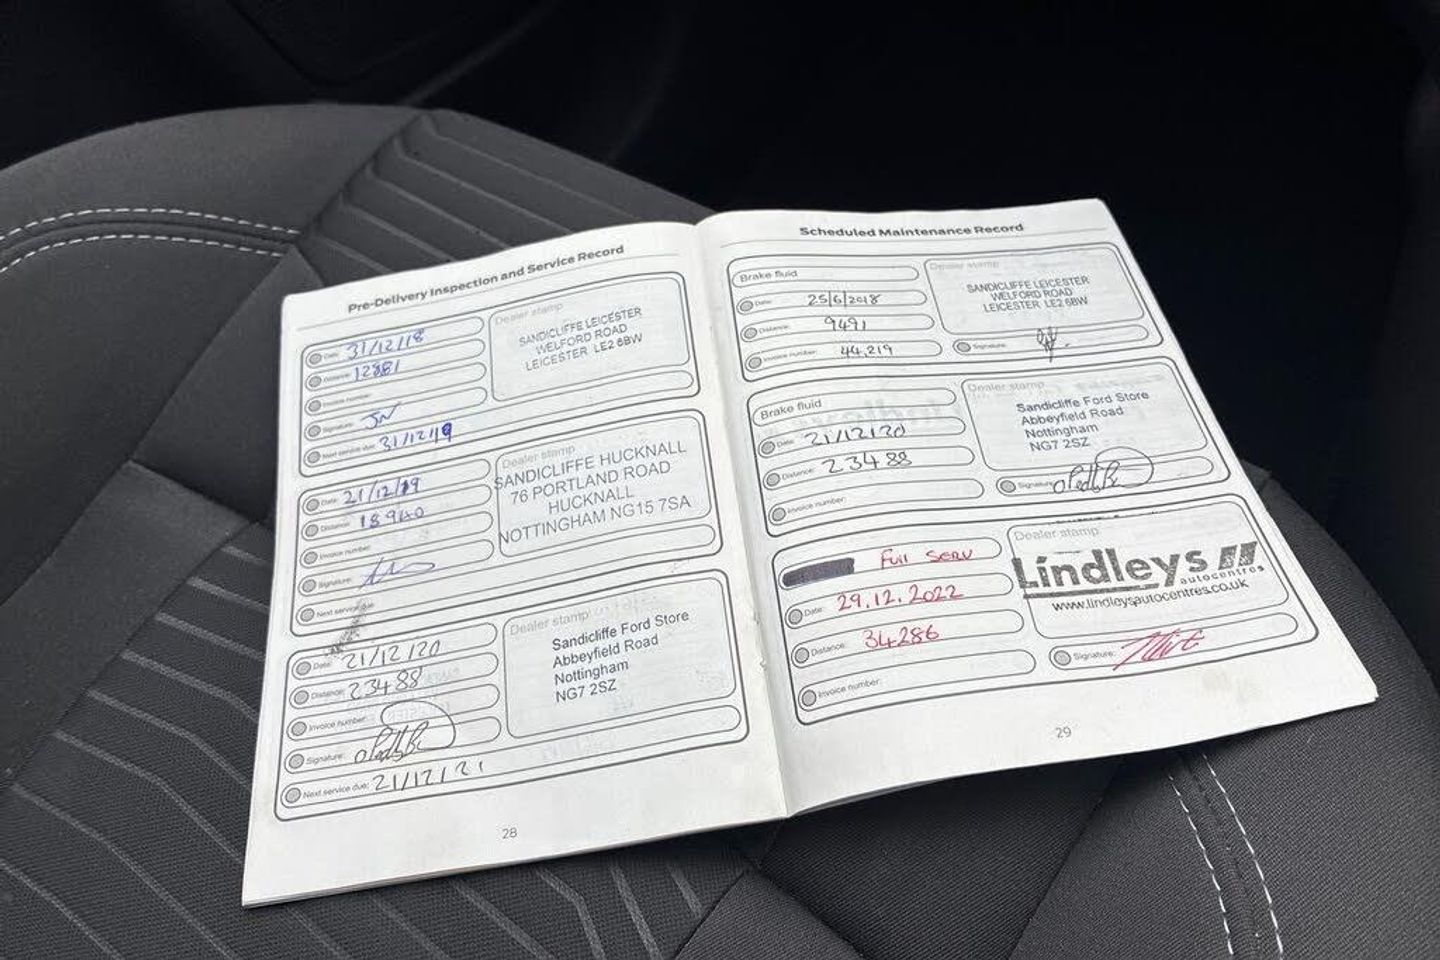 Pre-Delivery Inspection and Service Record
Date: 31/12/18
Distance: 12881
Invoice number:
Signature: JN
Next service due: 31/12/19
Dealer stamp
SANDICLIFFE LEICESTER
WELFORD ROAD
LEICESTER LE2 6BW
Date: 21/12/19
Distance: 18940
Invoice number:
Signature:
Next service due:
Dealer stamp
SANDICLIFFE HUCKNALL
76 PORTLAND ROAD
HUCKNALL
NOTTINGHAM NG15 7SA
Date: 21/12/20
Distance: 23488
Invoice number:
Signature:
Next service due: 21/12/21
Dealer stamp
Sandicliffe Ford Store
Abbeyfield Road
Nottingham
NG7 2SZ
28
Scheduled Maintenance Record
Brake fluid
Date: 25/6/2018
Distance: 9491
Invoice number: 44,219
Dealer stamp
SANDICLIFFE LEICESTER
WELFORD ROAD
LEICESTER LE2 6BW
Signature:
Brake fluid
Date: 21/12/20
Distance: 23488
Invoice number:
Dealer stamp
Sandicliffe Ford Store
Abbeyfield Road
Nottingham
NG7 2SZ
Signature:
Full Serv
Date: 29.12.2022
Distance: 34286
Invoice number:
Dealer stamp
Lindleys
autocentres
www.lindleysautocentres.co.uk
Signature:
29